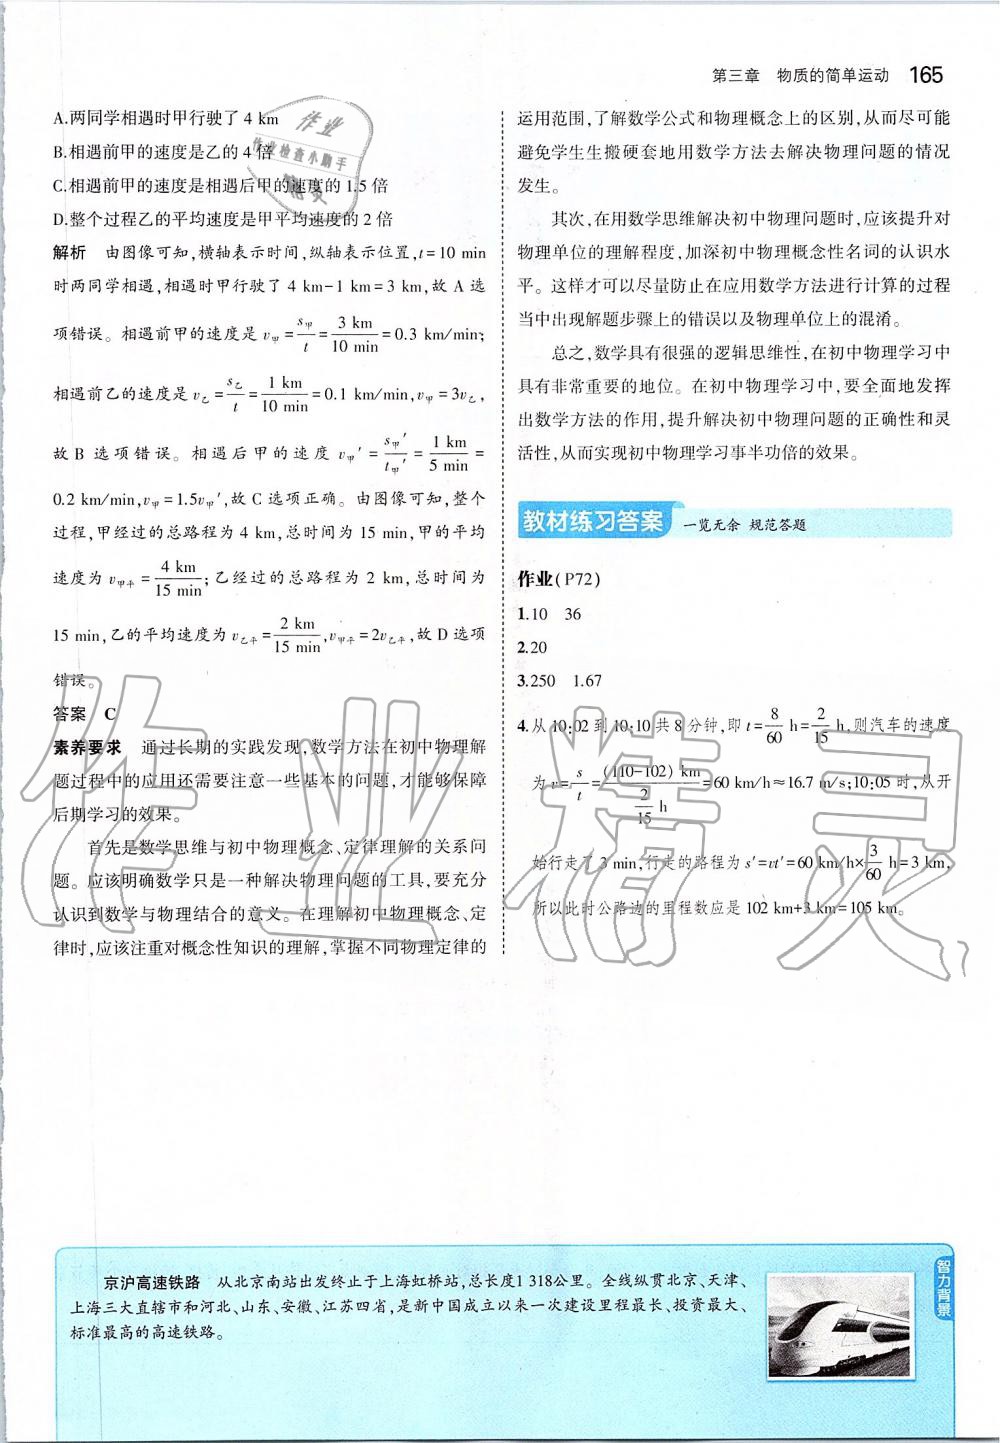 第三章　物质的简单运动　165
A.两同学相遇时甲行驶了 4 km
B.相遇前甲的速度是乙的 4 倍
C.相遇前甲的速度是相遇后甲的速度的 1.5 倍
D.整个过程乙的平均速度是甲平均速度的 2 倍
解析　由图像可知,横轴表示时间,纵轴表示位置,t=10 min
时两同学相遇,相遇时甲行驶了 4 km-1 km=3 km,故 A 选
项错误。相遇前甲的速度是 v甲=s甲/t=3 km/10 min=0.3 km/min;
相遇前乙的速度是 v乙=s乙/t=1 km/10 min=0.1 km/min,v甲=3v乙,
故 B 选项错误。相遇后甲的速度 v甲′=s甲′/t甲′=1 km/5 min=
0.2 km/min,v甲=1.5v甲′,故 C 选项正确。由图像可知,整个
过程,甲经过的总路程为 4 km,总时间为 15 min,甲的平均
速度为 v甲平=4 km/15 min;乙经过的总路程为 2 km,总时间为
15 min,乙的平均速度为 v乙平=2 km/15 min,v甲平=2v乙平,故 D 选项
错误。
答案　C
素养要求　通过长期的实践发现,数学方法在初中物理解
题过程中的应用还需要注意一些基本的问题,才能够保障
后期学习的效果。
首先是数学思维与初中物理概念、定律理解的关系问
题。应该明确数学只是一种解决物理问题的工具,要充分
认识到数学与物理结合的意义。在理解初中物理概念、定
律时,应该注重对概念性知识的理解,掌握不同物理定律的
运用范围,了解数学公式和物理概念上的区别,从而尽可能
避免学生生搬硬套地用数学方法去解决物理问题的情况
发生。
其次,在用数学思维解决初中物理问题时,应该提升对
物理单位的理解程度,加深初中物理概念性名词的认识水
平。这样才可以尽量防止在应用数学方法进行计算的过程
当中出现解题步骤上的错误以及物理单位上的混淆。
总之,数学具有很强的逻辑思维性,在初中物理学习中
具有非常重要的地位。在初中物理学习中,要全面地发挥
出数学方法的作用,提升解决初中物理问题的正确性和灵
活性,从而实现初中物理学习事半功倍的效果。
教材练习答案　一览无余 规范答题
作业(P72)
1.10　36
2.20
3.250　1.67
4.从 10:02 到 10:10 共 8 分钟,即 t=8/60 h=2/15 h,则汽车的速度
为 v=s/t=(110-102) km/(2/15 h)=60 km/h≈16.7 m/s;10:05 时,从开
始行走了 3 min,行走的路程为 s′=vt′=60 km/h×3/60 h=3 km,
所以此时公路边的里程数应是 102 km+3 km=105 km。
作业
作业检查小助手
作业精灵
京沪高速铁路　从北京南站出发终止于上海虹桥站,总长度1 318公里。全线纵贯北京、天津、
上海三大直辖市和河北、山东、安徽、江苏四省,是新中国成立以来一次建设里程最长、投资最大、
标准最高的高速铁路。
智力背景